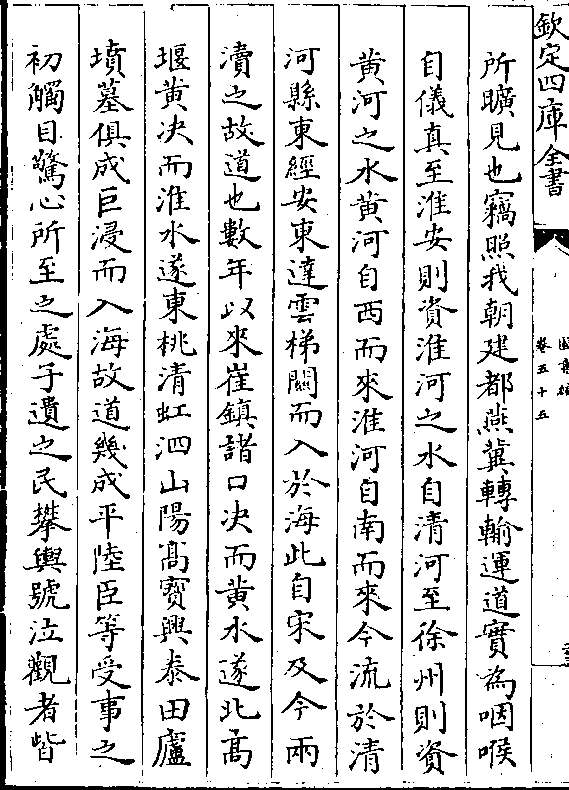 欽定四庫全書
卷五十五
所曠見也竊照我朝建都燕冀轉輸運道實為咽喉
自儀真至淮安則資淮河之水自清河至徐州則資
黃河之水黃河自西而來淮河自南而來今流於清
河縣東經安東達雲梯關而入於海此自宋及今兩
瀆之故道也數年以來崔鎮諸口決而黃水遂北髙
堰黃決而淮水遂東桃清虹泗山陽髙寳興泰田廬
墳墓俱成巨浸而入海故道幾成平陸臣等受事之
初觸目驚心所至之處孑遺之民攀輿號泣觀者皆